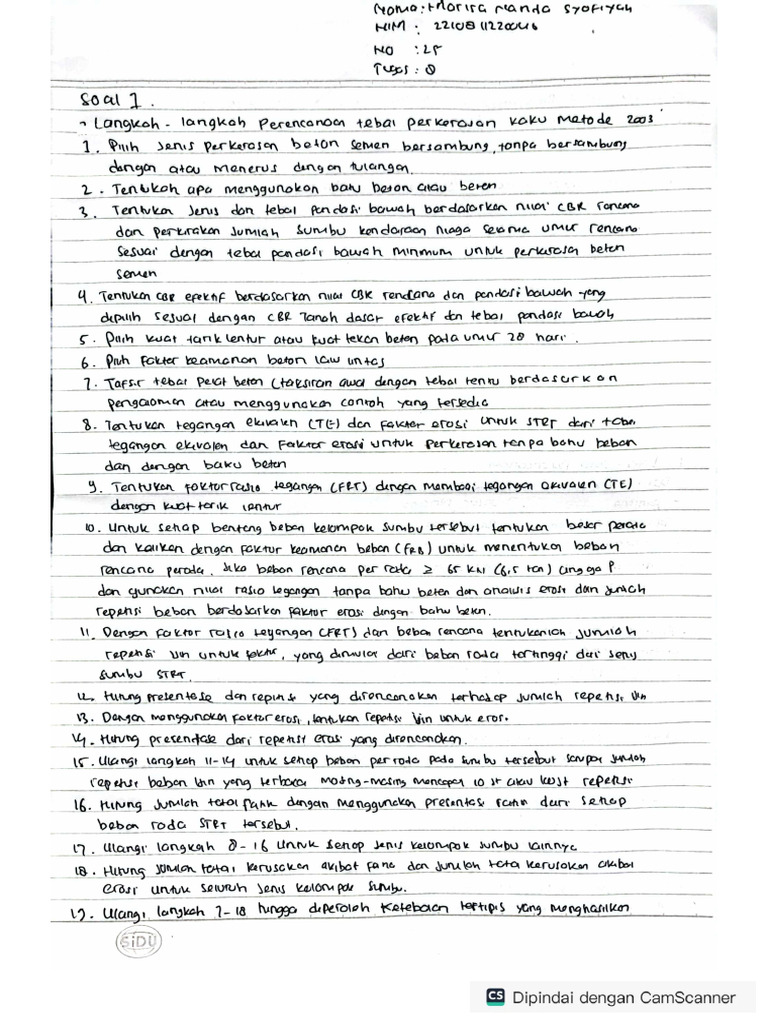 Nama: Marisa Nanda Syofiyah
NIM : 221081122004
NO : 25
Tugas : 8
Soal 1.
Langkah - langkah Perencanaan tebal perkerasan kaku metode 2003
1. Pilih Jenis Perkerasan beton semen bersambung, tanpa bersambung
dengan atau menerus dengan tulangan.
2. Tentukah apa menggunakan bahu beton atau beren
3. Tentukan Jenis dan tebal pondasi bawah berdasarkan nilai CBR rencana
dan perkirakan jumlah sumbu kendaraan niaga selama umur rencana
sesuai dengan tebal pondasi bawah minimum untuk perkerasan beton
semen
4. Tentukan CBR efektif berdasarkan nilai CBR rencana dan pondasi bawah yang
dipilih sesuai dengan CBR Tanah dasar efektif dan tebal pondasi bawah
5. Pilih kuat tarik lentur atau kuat tekan beton pada umur 28 hari.
6. Pilih faktor keamanan beban lalu lintas
7. Tafsir tebal pelat beton (taksiran awal dengan tebal tentu berdasarkan
pengalaman atau menggunakan contoh yang tersedia
8. Tentukan tegangan ekivalen (TE) dan faktor erosi untuk STRT dari tabel
tegangan ekivalen dan faktor erosi untuk perkerasan tanpa bahu beban
dan dengan bahu beton
9. Tentukan faktor rasio tegangan (FRT) dengan membagi tegangan ekivalen (TE)
dengan kuat tarik lentur
10. Untuk setiap benteng beban kelompok sumbu tersebut tentukan beser peroda
dan kalikan dengan faktor keamanan beban (FKB) untuk menentukan beban
rencana peroda. Jika beban rencana per roda ≥ 65 kN (6,5 ton)
dan gunakan nilai rasio tegangan tanpa bahu beton dan analisis erosi dan jumlah
repetisi beban berdasarkan faktor erosi dengan bahu beton.
11. Dengan faktor rasio tegangan (FRT) dan beban rencana tentukanlah jumlah
repetisi ijin untuk yang dimulai dari beban roda tertinggi dari
sumbu STRT.
12. Hitung presentase dan yang direncanakan terhadap jumlah repetisi ijin
13. Dengan menggunakan faktor erosi, tentukan repetisi ijin untuk erosi.
14. Hitung presentase dari repetisi erosi yang direncanakan.
15. Ulangi langkah 11-14 untuk setiap beban per roda pada sumbu tersebut sampai jumlah
repetisi beban ijin yang terbaca masing-masing mencapai repetisi
16. Hitung jumlah total fatik dengan menggunakan presentasi fatik dari setiap
beban roda STRT tersebut.
17. Ulangi langkah 8-16 Untuk setiap Jenis kelompok sumbu lainnya
18. Hitung jumlah total kerusakan akibat dan jumlah total kerusakan akibat
erosi untuk seluruh Jenis kelompok sumbu.
19. Ulangi langkah 7-18 hingga diperoleh ketebalan tertipis yang menghasilkan
SiDU
CS Dipindai dengan CamScanner